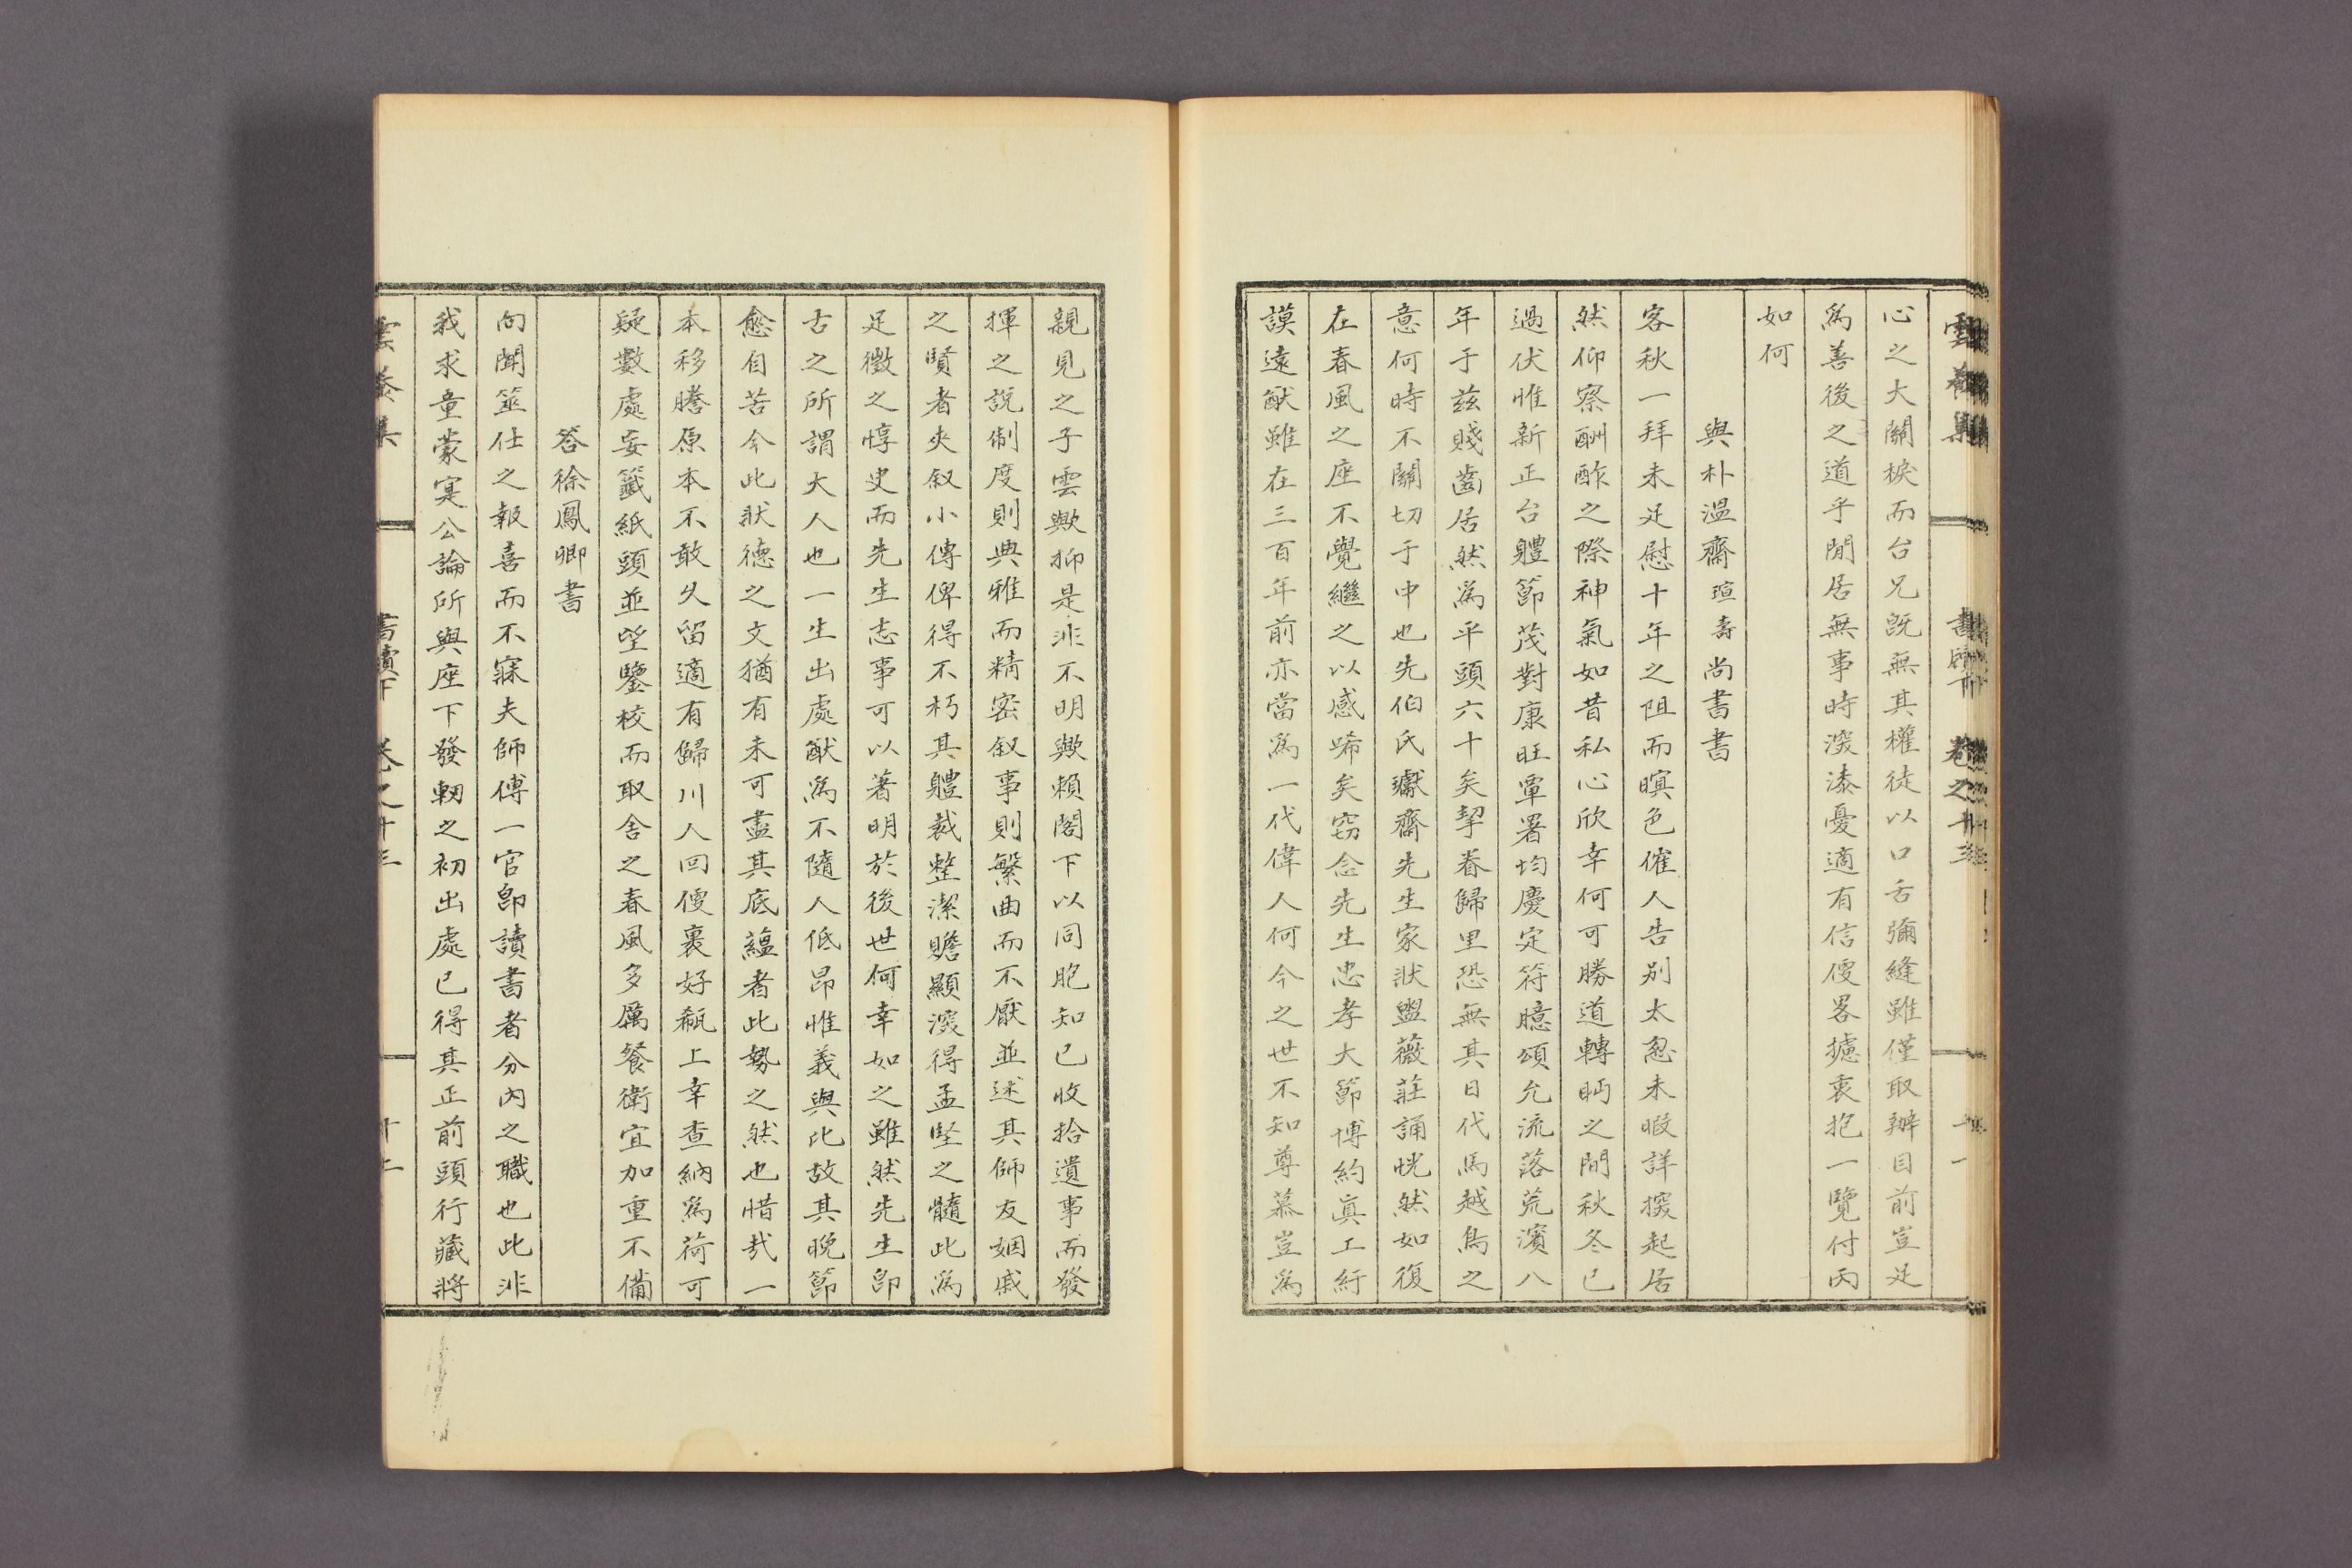 雲養集 書牘下 卷之十三 十一
心之大關棙而台兄旣無其權徒以口舌彌縫雖僅取辦目前豈足
爲善後之道乎閒居無事時深漆憂適有信便畧攄衷抱一覽付丙
如何
與朴溫齋瑄壽尙書書
客秋一拜未足慰十年之阻而暝色催人告别太怱未暇詳探起居
然仰察酬酢之際神氣如昔私心欣幸何可勝道轉眄之間秋冬已
過伏惟新正台體節茂對康旺覃署均慶定符臆頌允流落荒濱八
年于玆賤齒居然爲平頭六十矣挈眷歸里恐無其日代馬越鳥之
意何時不關切于中也先伯氏瓛齋先生家狀盥薇莊誦恍然如復
在春風之座不覺繼之以感唏矣窃念先生忠孝大節博約眞工紆
謨遠猷雖在三百年前亦當爲一代偉人何今之世不知尊慕豈爲
親見之子雲歟抑是非不明歟賴閤下以同胞知已收拾遺事而發
揮之說制度則典雅而精密叙事則繁曲而不厭並述其師友姻戚
之賢者夾叙小傳俾得不朽其體裁整潔贍顯深得孟堅之髓此爲
足徵之惇史而先生志事可以著明於後世何幸如之雖然先生卽
古之所謂大人也一生出處猷爲不隨人低昂惟義與比故其晚節
愈自苦今此狀德之文猶有未可盡其底蘊者此勢之然也惜哉一
本移謄原本不敢久留適有歸川人回便裹好瓻上幸查納爲荷可
疑數處妄籤紙頭並望鑒校而取舍之春風多厲餐衛宜加重不備
答徐鳳卿書
向聞筮仕之報喜而不寐夫師傅一官卽讀書者分內之職也此非
我求童蒙寔公論所與座下發軔之初出處已得其正前頭行藏將
雲養集 書牘下 卷之十三 十二